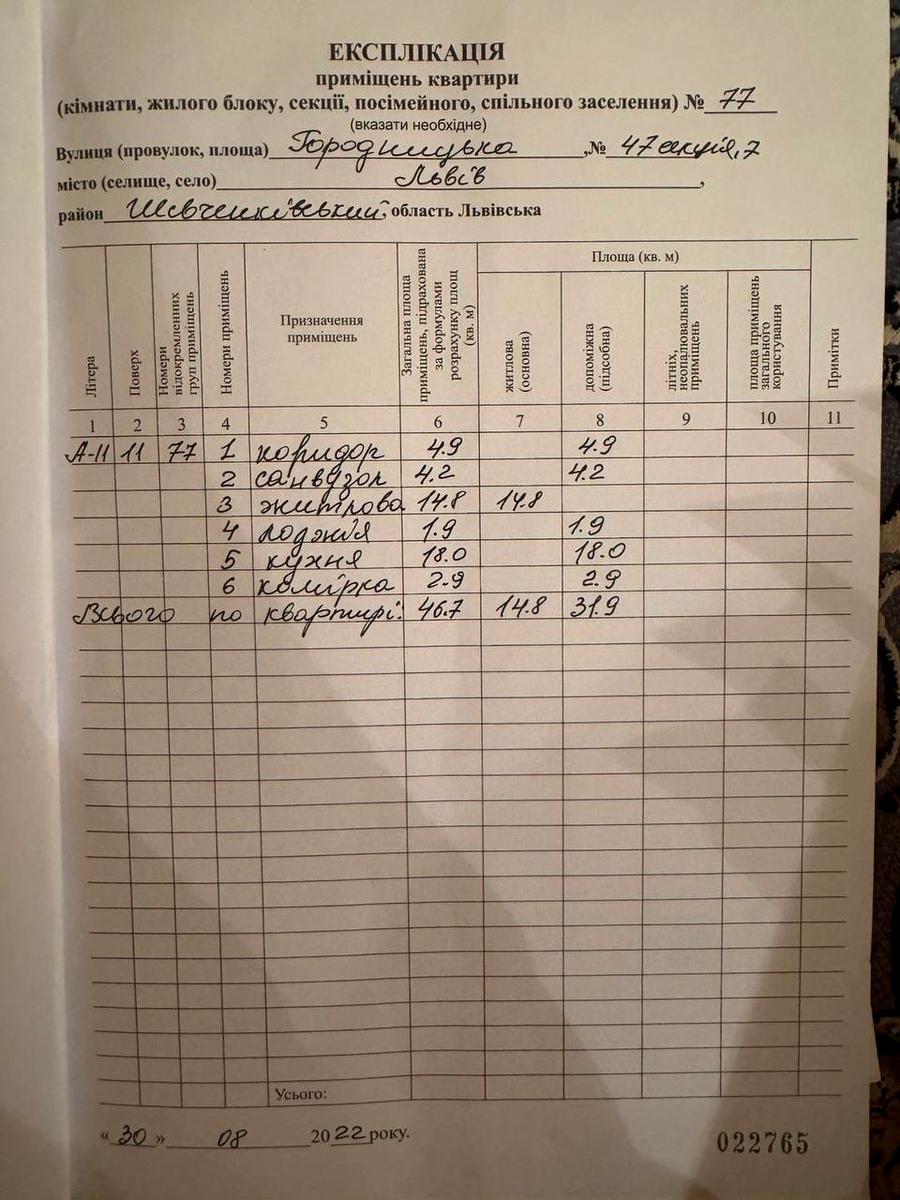 ЕКСПЛІКАЦІЯ
приміщень квартири
(кімнати, жилого блоку, секції, посімейного, спільного заселення) № 77
(вказати необхідне)
Вулиця (провулок, площа) Городницька ,№ 47 секція, 7
місто (селище, село) Львів ,
район Шевченківський, область Львівська
Літера Поверх Номери відокремленних груп приміщень Номери приміщень Призначення приміщень Загальна площа приміщень, підрахована за формулами розрахунку площ (кв. м) Площа (кв. м) Примітки
житлова (основна) допоміжна (підсобна) літніх, неопалювальних приміщень площа приміщень загального користування
1 2 3 4 5 6 7 8 9 10 11
А-11 11 77 1 коридор 4.9 4.9
2 санвузол 4.2 4.2
3 житлова 14.8 14.8
4 лоджія 1.9 1.9
5 кухня 18.0 18.0
6 комірка 2.9 2.9
Всього по квартирі: 46.7 14.8 31.9
Усього:
« 30 » 08 2022 року.
022765